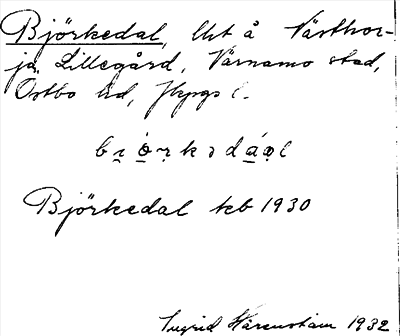 Björkedal, lht å Västhor-
ja Lillegård, Värnamo stad,
Östbo hd, Jkpgs l.
Björkedal teb 1930
Ingrid Härenstam 1932